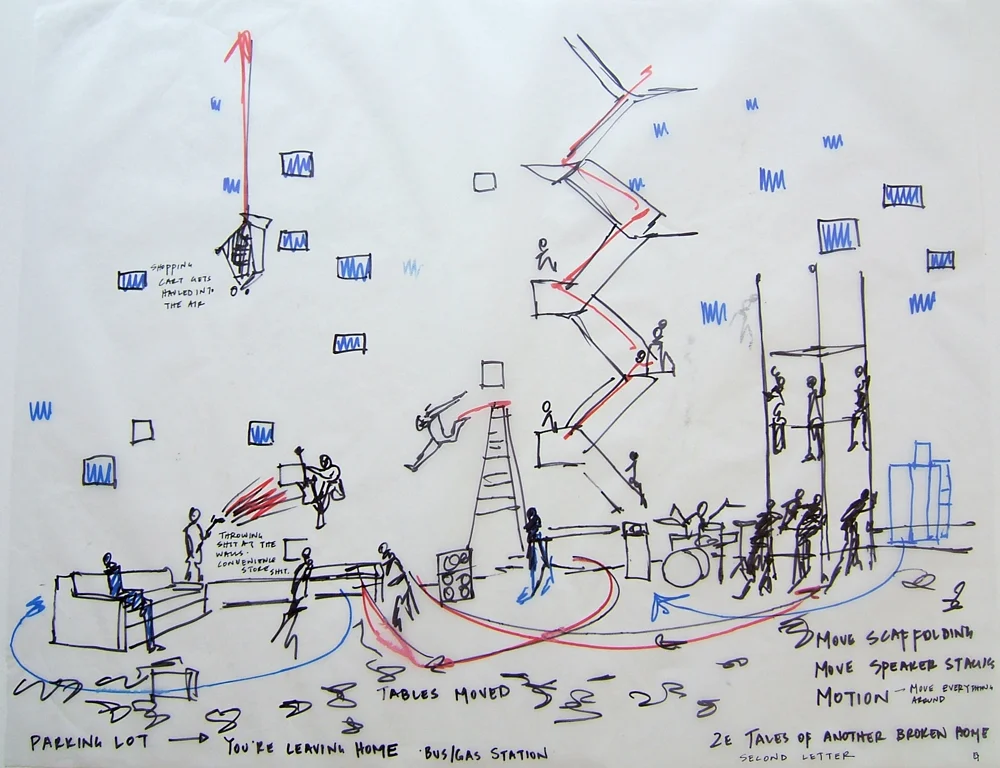 SHOPPING
CART GETS
HAULED INTO
THE AIR
THROWING
SHIT AT THE
WALLS.
CONVENIENCE
STORE SHIT.
TABLES MOVED
MOVE SCAFFOLDING
MOVE SPEAKER STACKS
MOTION - MOVE EVERYTHING
AROUND
PARKING LOT → YOU'RE LEAVING HOME · BUS/GAS STATION
2E TALES OF ANOTHER BROKEN HOME
SECOND LETTER